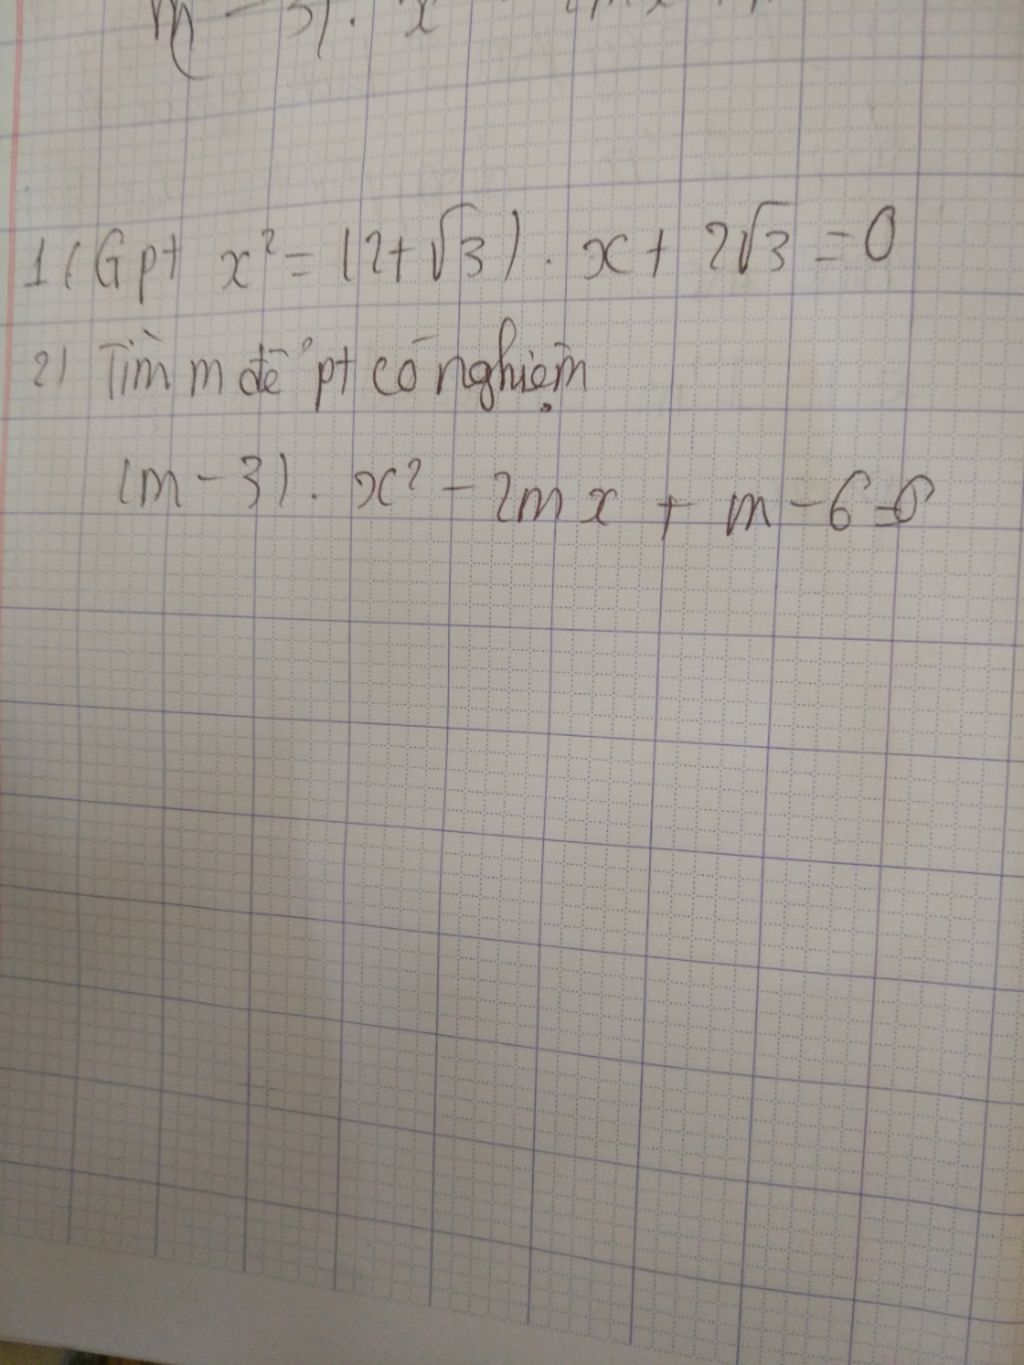 m - 3) . x
1) Gpt x² = (2+√3) . x + 2√3 = 0
2) Tìm m để pt có nghiệm
(m - 3) . x² - 2mx + m - 6 = 0